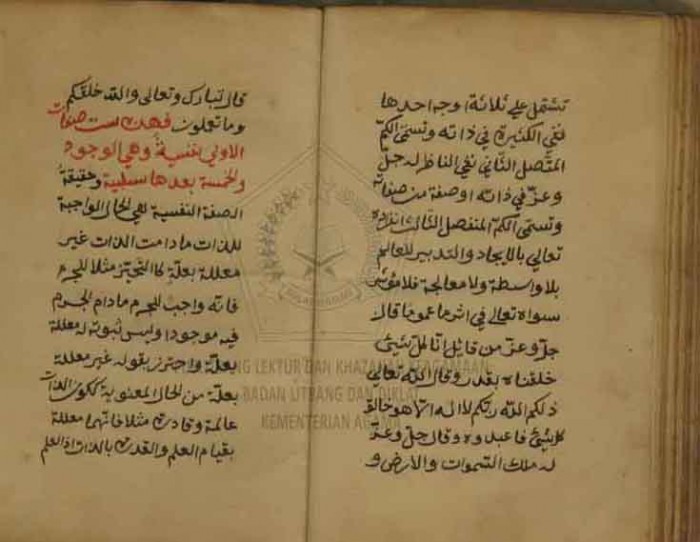 تشتمل على ثلاثة اوجه احدها
نفي الكثيرة في ذاته وتسمى الكم
المتصل الثاني نفي الناظر له جل
وعز في ذاته او صفة من صفاته
وتسمى الكم المنفصل الثالث انفراده
تعالى بالايجاد والتدبير للعالم
بلا واسطة ولا معالجة فلا مؤثر
سواه تعالى في اثر ما عموما قال
جل وعز من قائل انا كل شيئ
خلقناه بقدر وقال الله تعالى
ذلكم الله ربكم لا اله الا هو خالق
كل شيئ فاعبدوه وقال جل وعز
له ملك السموات والارض و
قال تبارك وتعالى والله خلقكم
وما تعملون فهذه ست صفات
الاولى نفسية وهي الوجود
والخمسة بعدها سلبية وحقيقة
الصفة النفسية هي الحال الواجبة
للذات ما دامت الذات غير
معللة بعلة كالتحيز مثلا للجرم
فانه واجب للجرم مادام الجرم
فيه موجودا وليس ثبوته له معللة
بعلة واحترز بقوله غير معللة
بعلة من الحال المعنوية ككون الذات
عالمة وقادرة مثلا فانهما معللة
بقيام العلم والقدرة بالذات اذ العلم
LEKTUR DAN KHAZANAH KEAGAMAAN
BADAN LITBANG DAN DIKLAT
KEMENTERIAN AGAMA